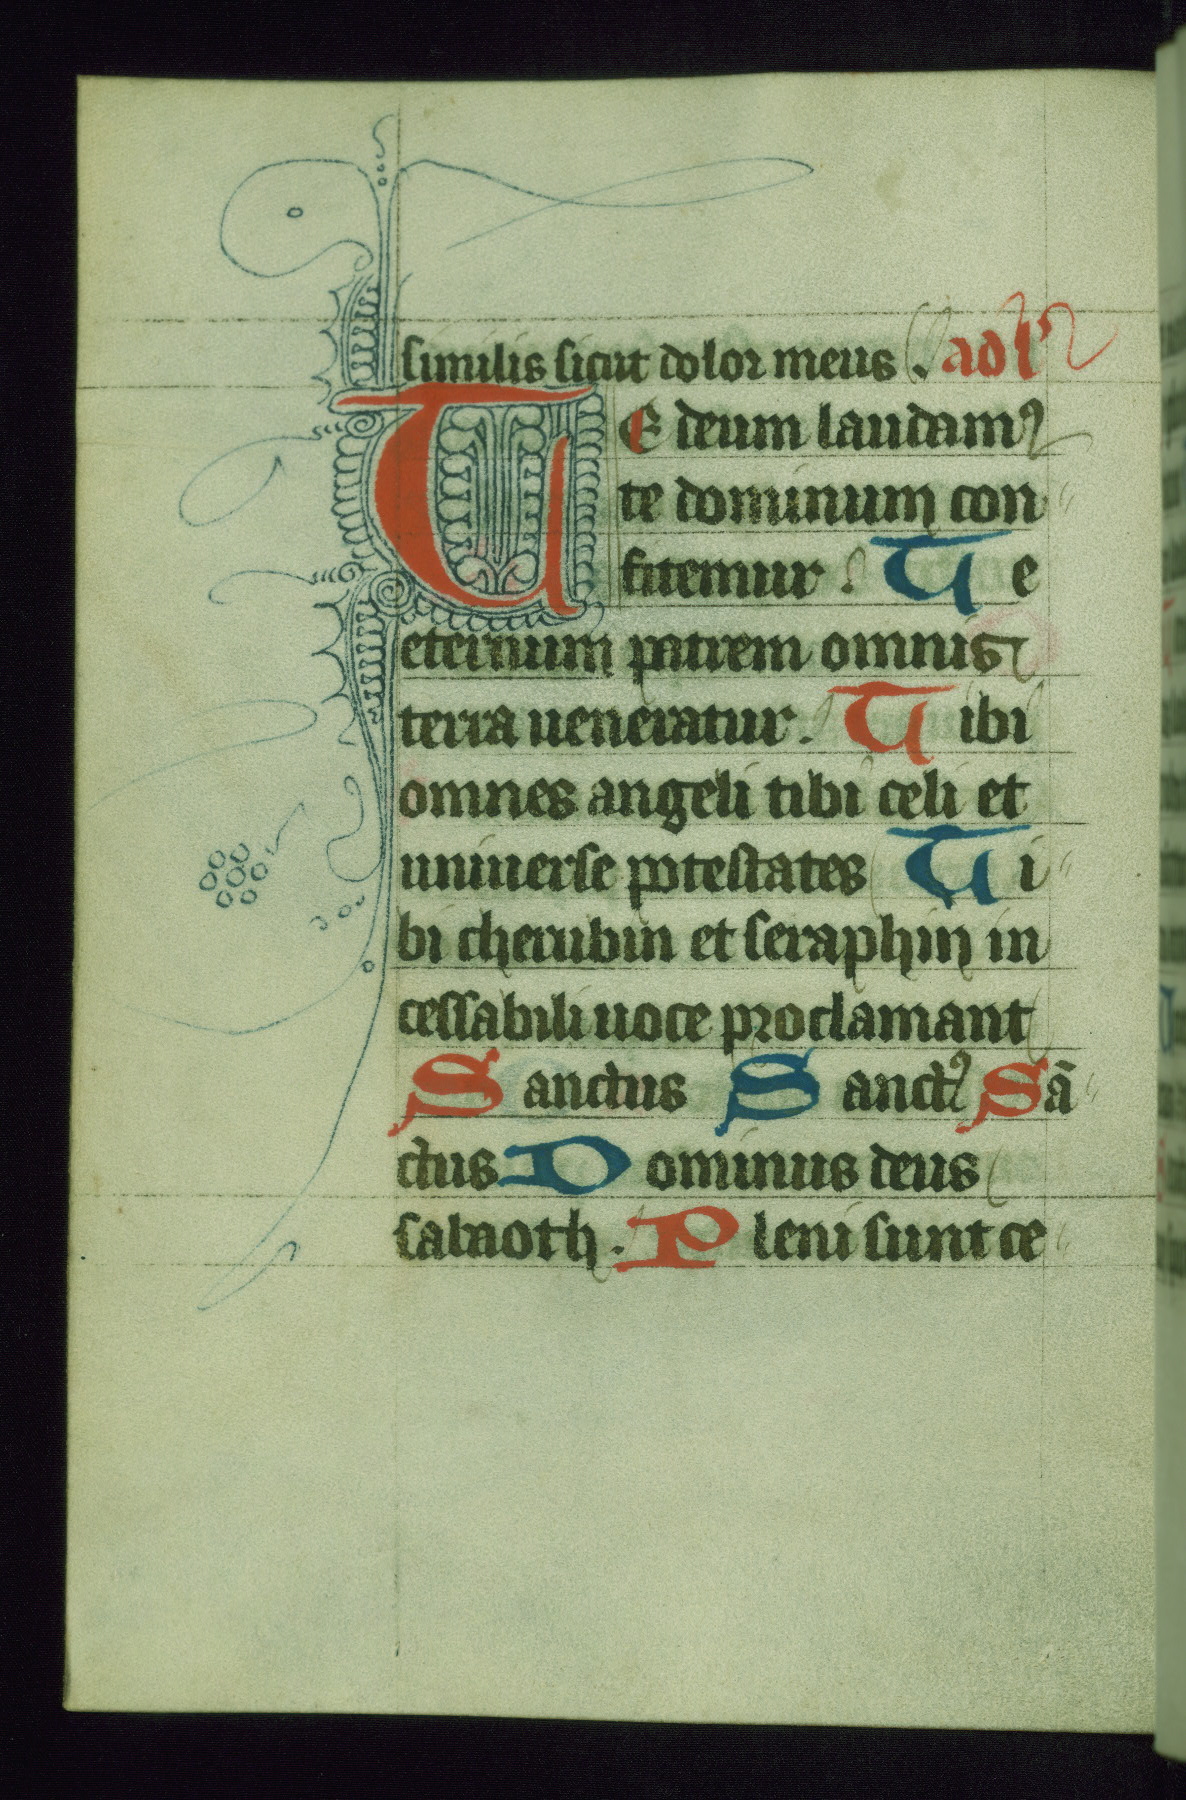 similis sicut dolor meus . ad l'
TE deum laudamꝰ
te dominum con
fitemur . Te
eternum patrem omnis
terra ueneratur . Tibi
omnes angeli tibi celi et
uniuerse potestates Ti
bi cherubin et seraphin in
cessabili uoce proclamant
Sanctus Sanctꝰ Sā
ctus Dominus deus
sabaoth . Pleni sunt ce